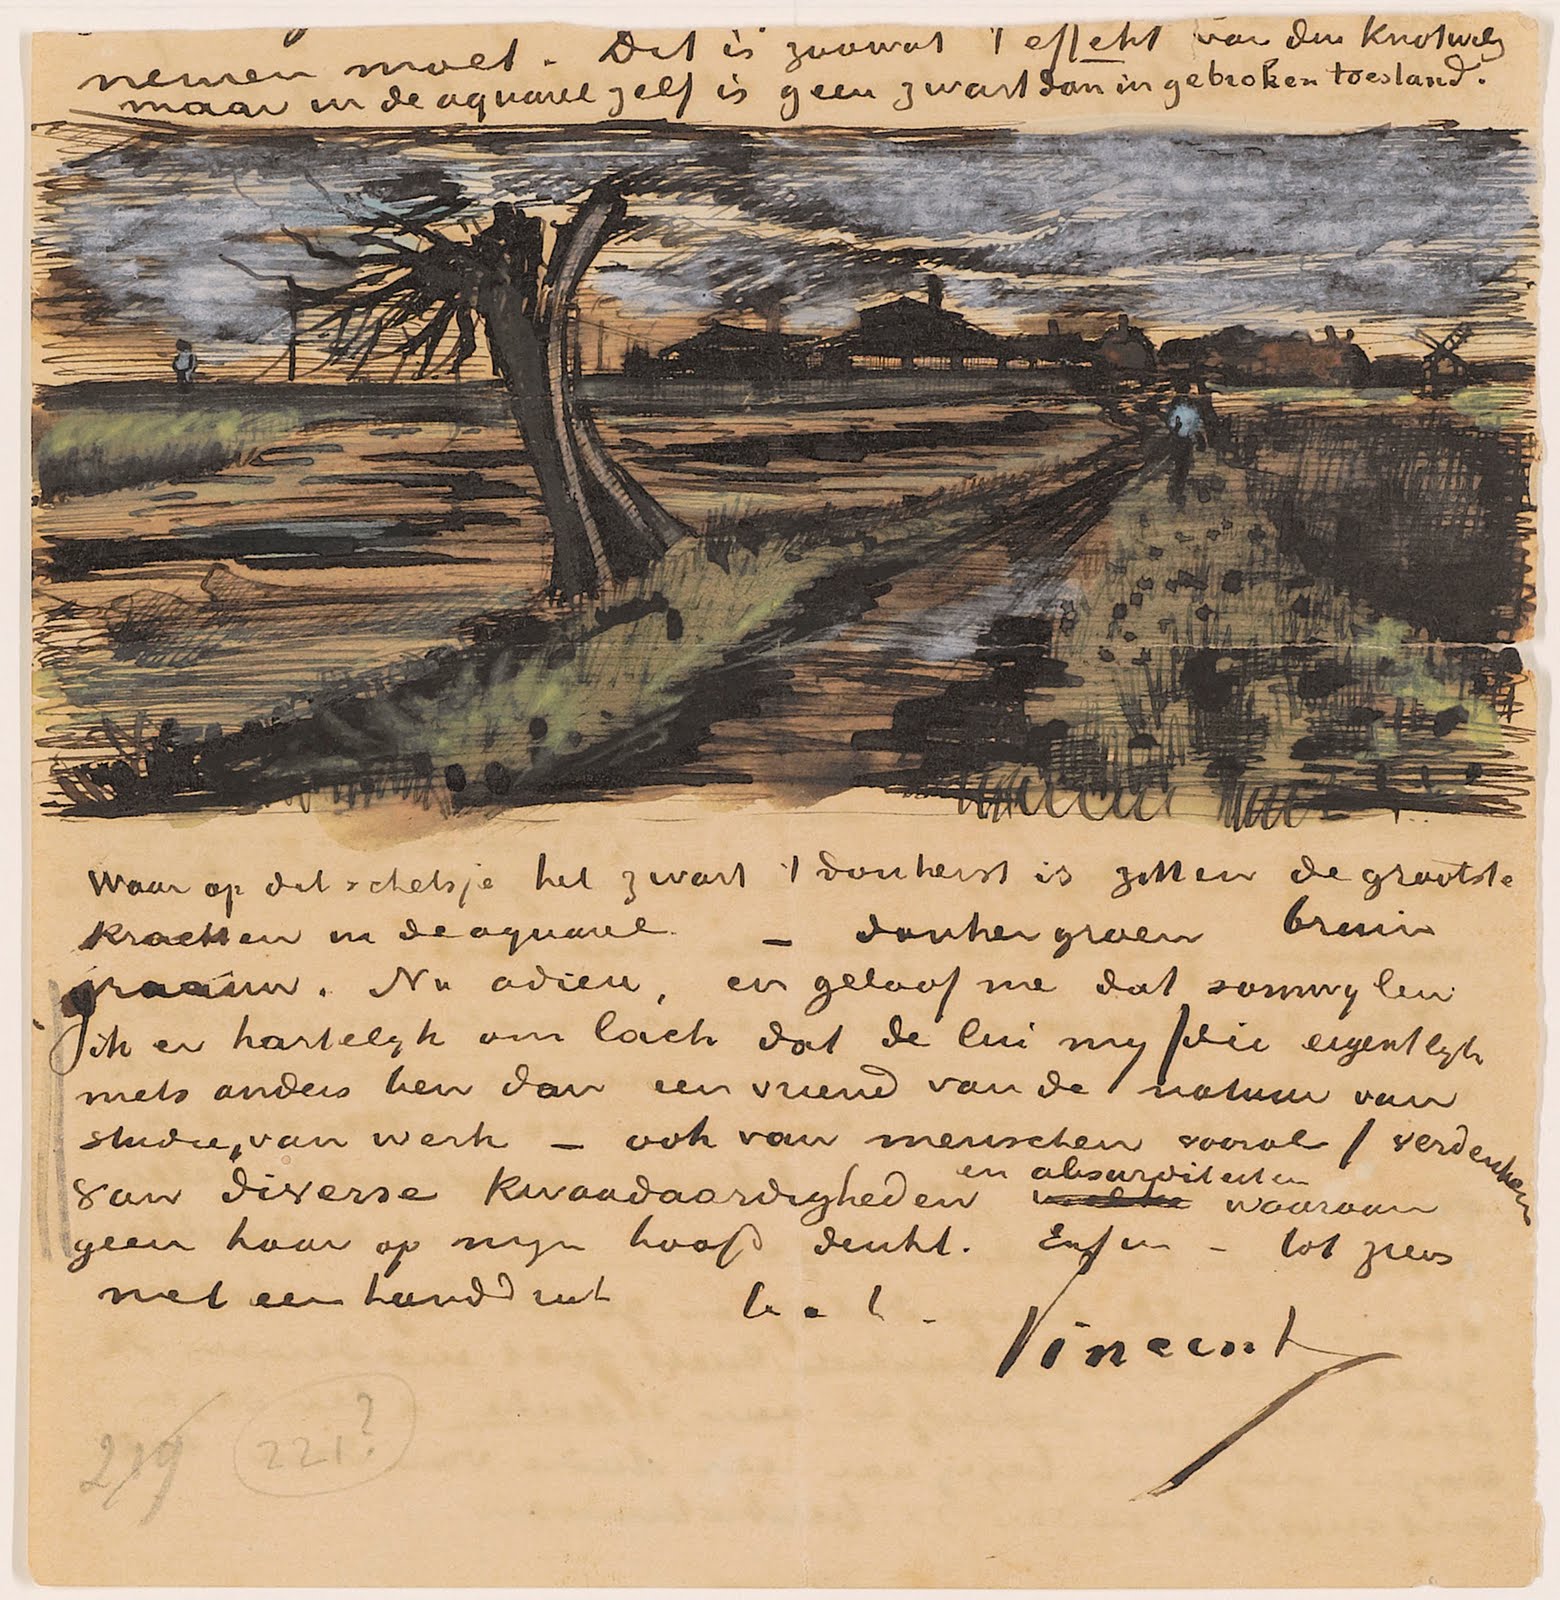 nemen moet. Dit is zoowat 't effekt van den knotwilg
maar in de aquarel zelf is geen zwart dan in gebroken toestand.
Waar op dit schetsje het zwart 't donkerst is zitten de grootste
krachten in de aquarel – donkergroen bruin
graauw. Nu adieu, en geloof me dat somwijlen
ik er hartelijk om lach dat de lui mij / die eigentlijk
niets anders ben dan een vriend van de natuur van
studie, van werk – ook van menschen vooral / verdenken
van diverse kwaadaardigheden en absurditeiten waaraan
geen haar op mijn hoofd denkt. Enfin – tot ziens
met een handdruk t. à t.
Vincent
219 221?